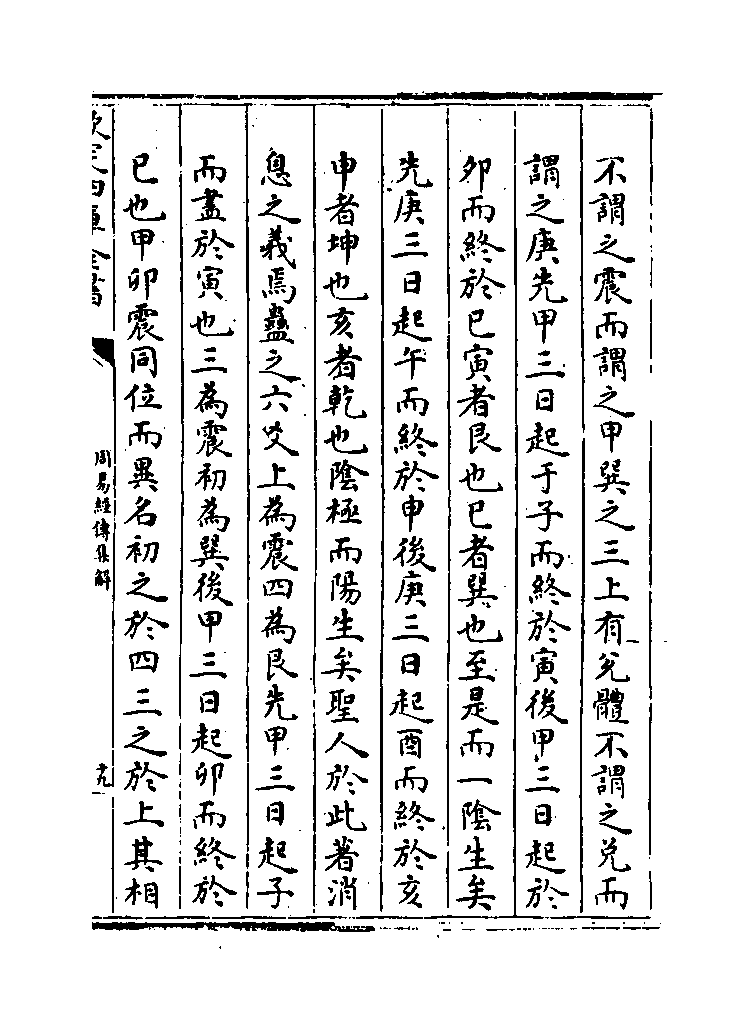 不謂之震而謂之甲巽之三上有兌體不謂之兌而
謂之庚先甲三日起于子而終於寅後甲三日起於
卯而終於巳寅者艮也巳者巽也至是而一陰生矣
先庚三日起午而終於申後庚三日起酉而終於亥
申者坤也亥者乾也陰極而陽生矣聖人於此著消
息之義焉蠱之六爻上為震四為艮先甲三日起子
而盡於寅也三為震初為巽後甲三日起卯而終於
巳也甲卯震同位而異名初之於四三之於上其相
欽定四庫全書
周易經傳集解
十九